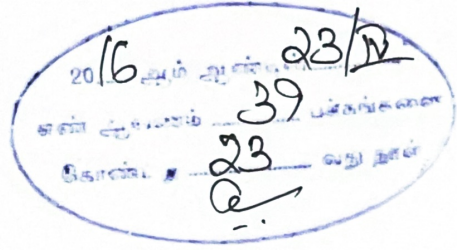 2016 ஆம் ஆண்டு 23/IV
எண் ஆவணம் 39 பக்கங்களை
கொண்ட 23 வது தாள்